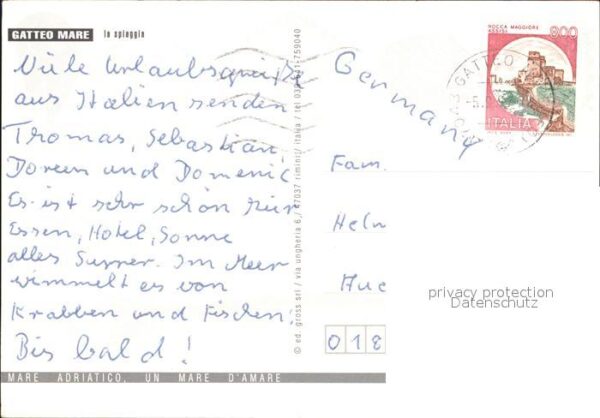 GATTEO MARE la spiaggia
Viele Urlaubsgrüße
aus Italien senden
Thomas, Sebastian,
Doreen und Domenic
Es ist sehr schön hier
Essen, Hotel, Sonne
alles Supper. Im Meer
wimmelt es von
Krabben und Fischen.
Bis bald!
MARE ADRIATICO, UN MARE D'AMARE
© ed. gross srl / via ungheria 6 / 47037 rimini / italia / tel 0541-759040
ROCCA MAGGIORE
ASSISI
800
ITALIA
GATTEO
Germany
Fam.
Helm
Aue
018
privacy protection
Datenschutz